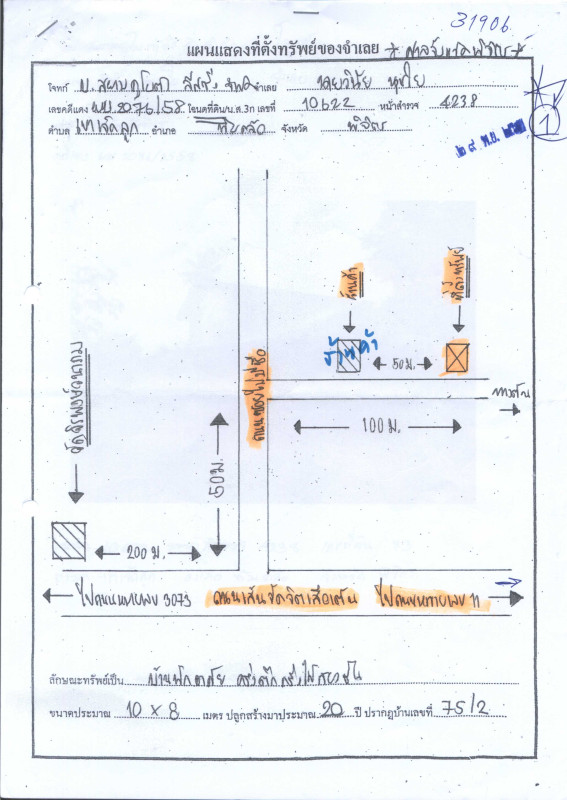 31906
แผนแสดงที่ตั้งทรัพย์ของจำเลย
โจทก์ บ. สยาม จำเลย นายวินัย
เลขคดีแดง ผบ. 2076/58 โฉนดที่ดิน/น.ส.3ก เลขที่ 10622 หน้าสำรวจ 4238
ตำบล เขาเจ็ดลูก อำเภอ ทับคล้อ จังหวัด พิจิตร
1
๒๙ พ.ย.
ร้านค้า
ที่ตั้งทรัพย์
ร้านค้า
50 ม.
ถนนซอยไม่มีชื่อ
ทางตัน
100 ม.
50 ม.
200 ม.
ไปถนนหมายเลข 3073 ถนนเส้น ไปถนนหมายเลข 11
ลักษณะทรัพย์เป็น บ้านพักอาศัย ครึ่งตึกครึ่งไม้สองชั้น
ขนาดประมาณ 10 x 8 เมตร ปลูกสร้างมาประมาณ 20 ปี ปรากฏบ้านเลขที่ 75/2